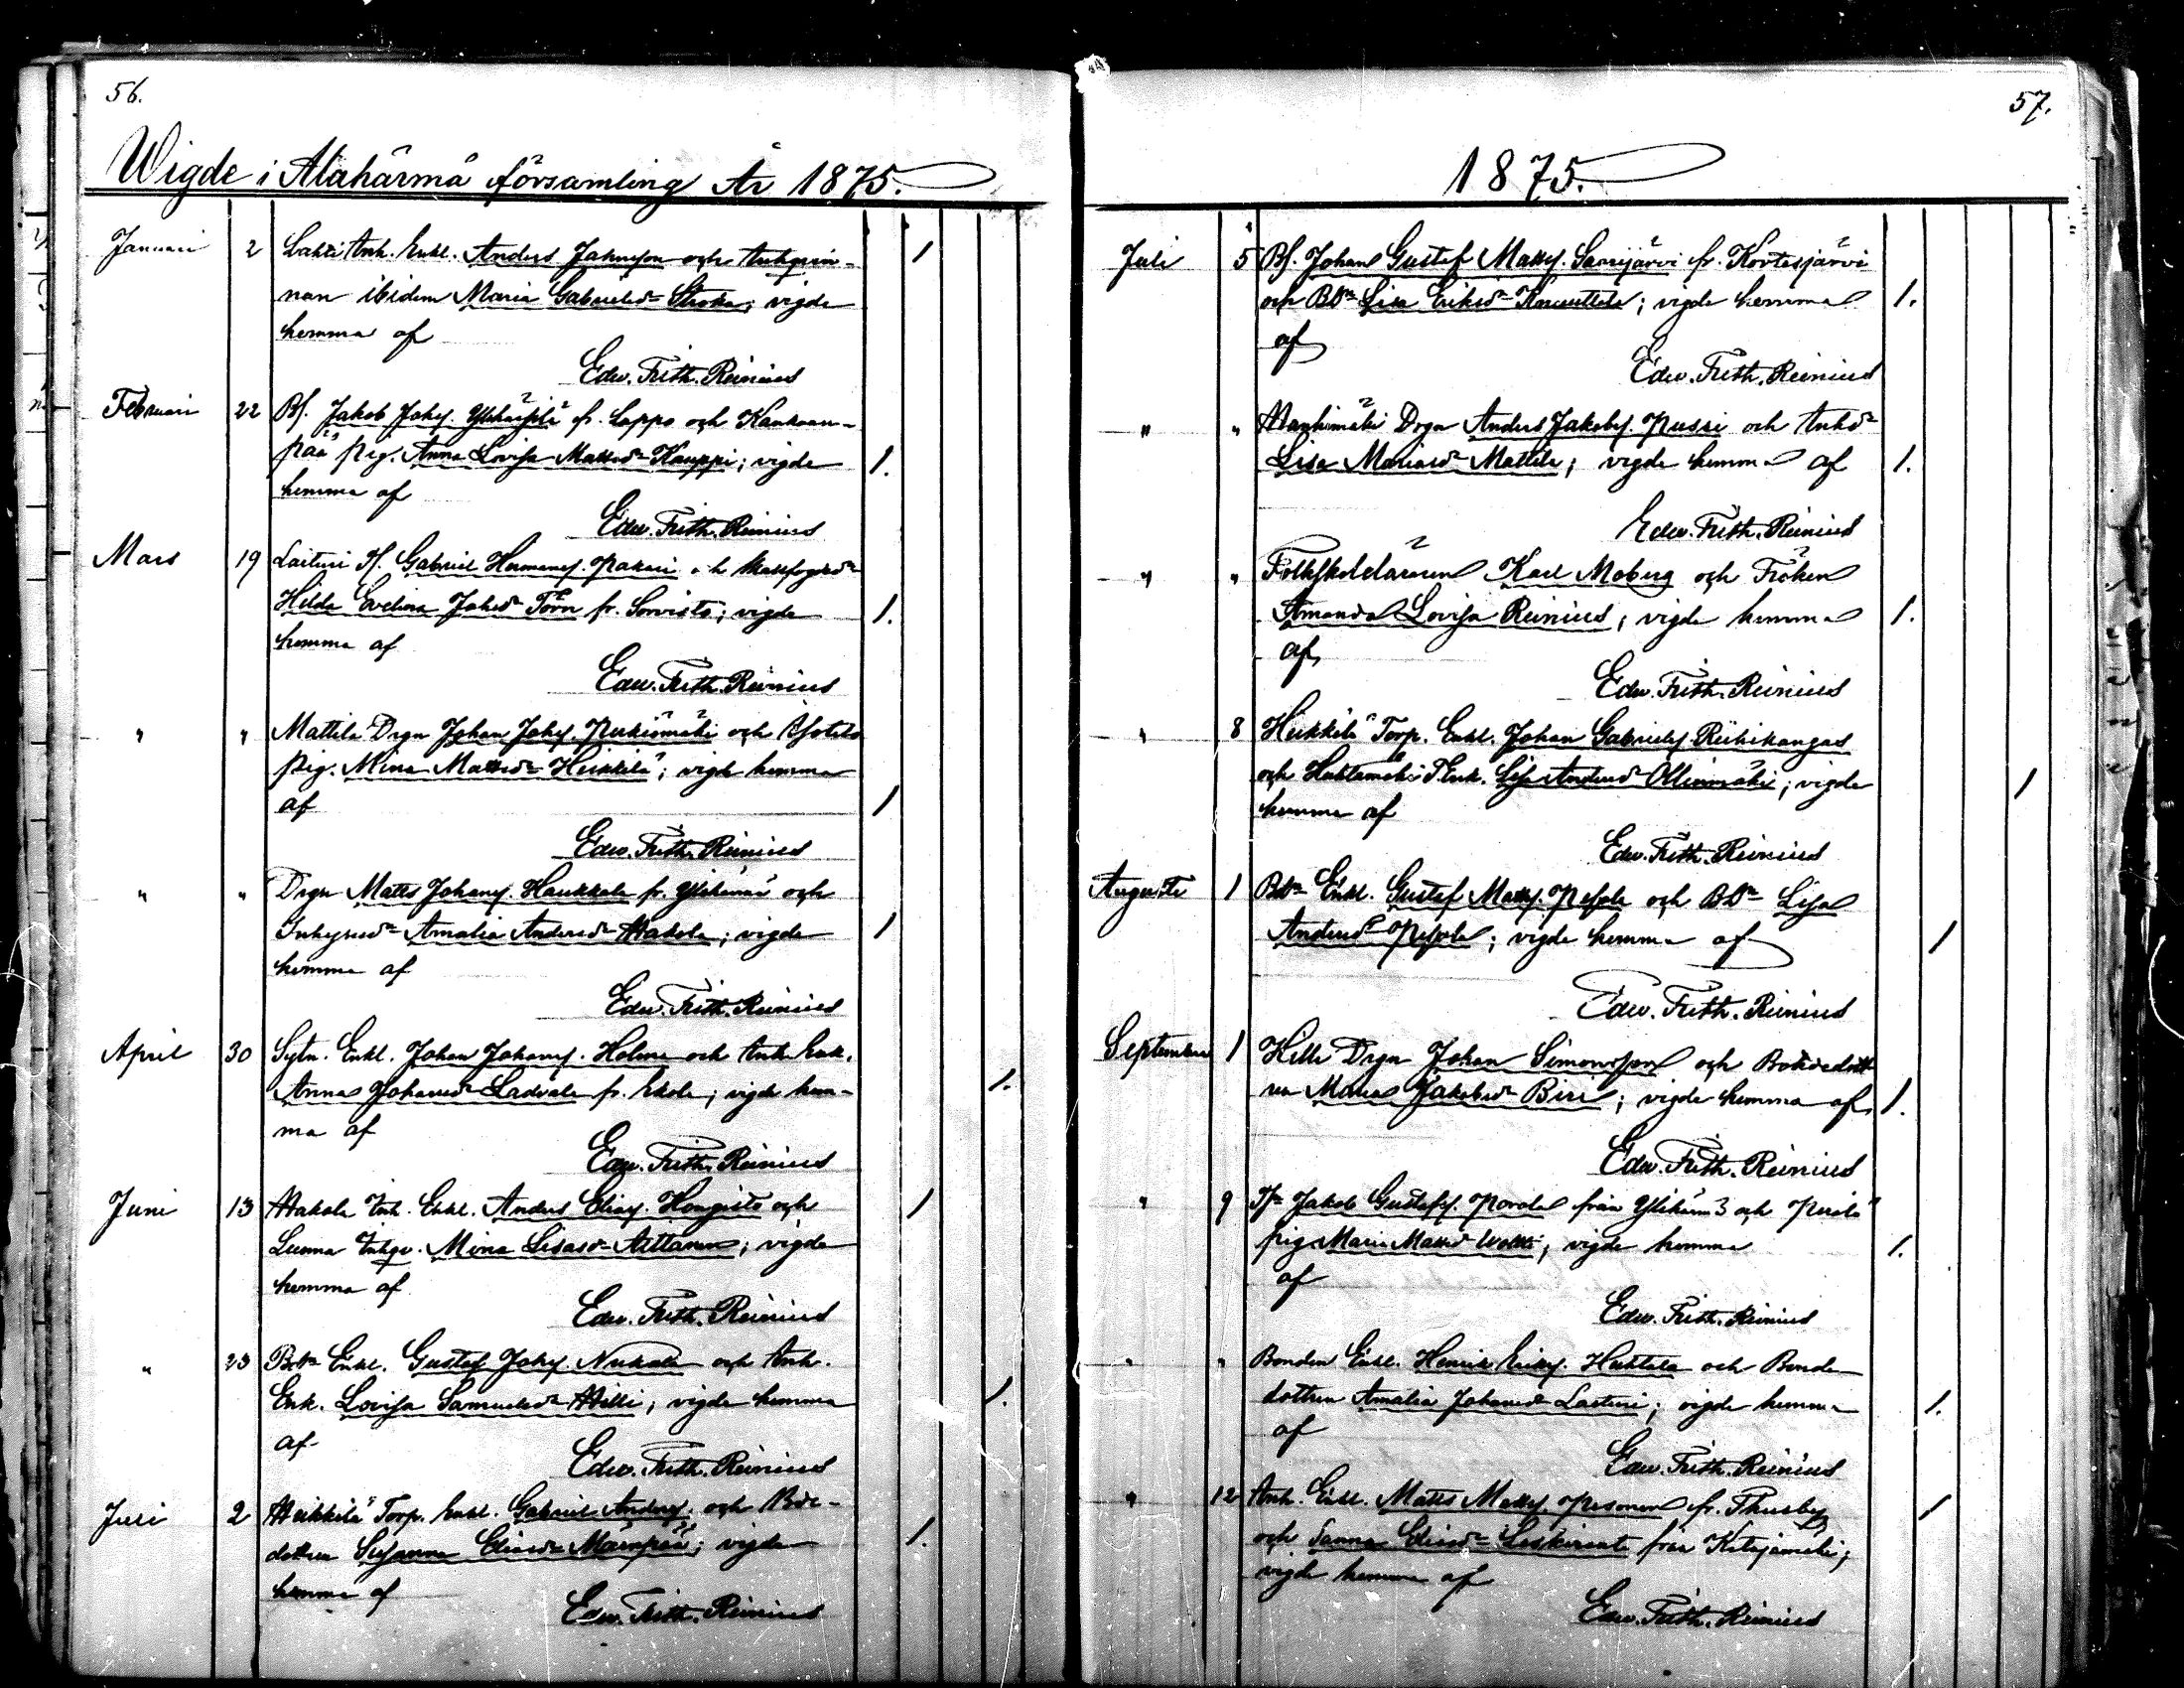 56.
Wigde i Alahärmä församling År 1875.
Januari 2 Lahti Inh. Enkl. Anders Johansson och Inhqvin-
nan ibidem Maria Gabrielsdr ; vigde 1
hemma af
Edw. Frith. Reinius
Februari 22 Bs. Jakob Johss. Ylihärsilä fr. Lappo och Kankaan-
pää pig. Anna Lovisa Mattsdr Kauppi; vigde 1.
hemma af
Edw. Frith. Reinius
Mars 19 Laituri Gabriel Hermanss. Pakari och
Hilda Evelina Johsdr Törn fr. Sorvisto; vigde 1.
hemma af
Edw. Frith. Reinius
" " Mattila Drgn Johan Johss. och
pig. Mina Mattsdr Heikkilä; vigde hemma
af 1
Edw. Frith. Reinius
" " Drgn Matts Johanss. Haukkala fr. Ylihärmä och
Amalia Andersdr Hakola; vigde 1
hemma af
Edw. Frith. Reinius
April 30 Sytn. Enkl. Johan Johanss. Holma och Inh. Enk.
Anna Johansdr Ladvala fr. Ekola; vigde hem- 1.
ma af
Edw. Frith. Reinius
Juni 13 Hakola Inh. Enkl. Anders Eliass. Hongisto och 1
Luoma Inhqv. Mina Lisasdr ; vigde
hemma af
Edw. Frith. Reinius
" 23 Bdn Enkl. Gustaf Johss. Nukala och Inh.
Enk. Lovisa Samuelsdr Hilli; vigde hemma 1.
af
Edw. Frith. Reinius
Juli 2 Heikkilä Torp. Enkl. Gabriel Anderss. och Bde-
dottren Susanna Eliasdr Mäenpää; vigde 1.
hemma af
Edw. Frith. Reinius
57.
1875.
Juli 5 Bs. Johan Gustaf Matts. Saarijärvi fr. Kortesjärvi
och Bdr Lisa Eriksdr ; vigde hemma 1.
af
Edw. Frith. Reinius
" " Hanhimäki Drgn Anders Jakobss. Passi och Inhdr
Lisa Mariasdr Mattila; vigde hemma af 1.
Edw. Frith. Reinius
" " Folkskoleläraren Karl Moberg och Fröken
Amanda Lovisa Reinius; vigde hemma 1.
af
Edw. Frith. Reinius
" 8 Heikkilä Torp. Enkl. Johan Gabrielss. Riihikangas
och Enk. Lisa Andersdr Ollinmäki; vigde 1
hemma af
Edw. Frith. Reinius
Augusti 1 Bdn Enkl. Gustaf Matts. Pesola och Bdr Lisa
Andersdr Pesola; vigde hemma af 1
Edw. Frith. Reinius
September 1 Hilli Drgn Johan Simonsson och Bondedott-
ren Maria Jakobsdr Biri; vigde hemma af 1.
Edw. Frith. Reinius
" 9 Jakob Gustafss. Porola från Ylihärmä och Perälä
pig. Maria Mattsdr ; vigde hemma 1.
af
Edw. Frith. Reinius
" " Bonden Enkl. Henrik Erikss. Huhtala och Bonde
dottren Amalia Johansdr Laituri; vigde hemma 1.
af
Edw. Frith. Reinius
" 12 Inh. Enkl. Matts Matts. Pesonen fr. Thusby 1
och Sanna Eliasdr från Katajamäki;
vigde hemma af
Edw. Frith. Reinius